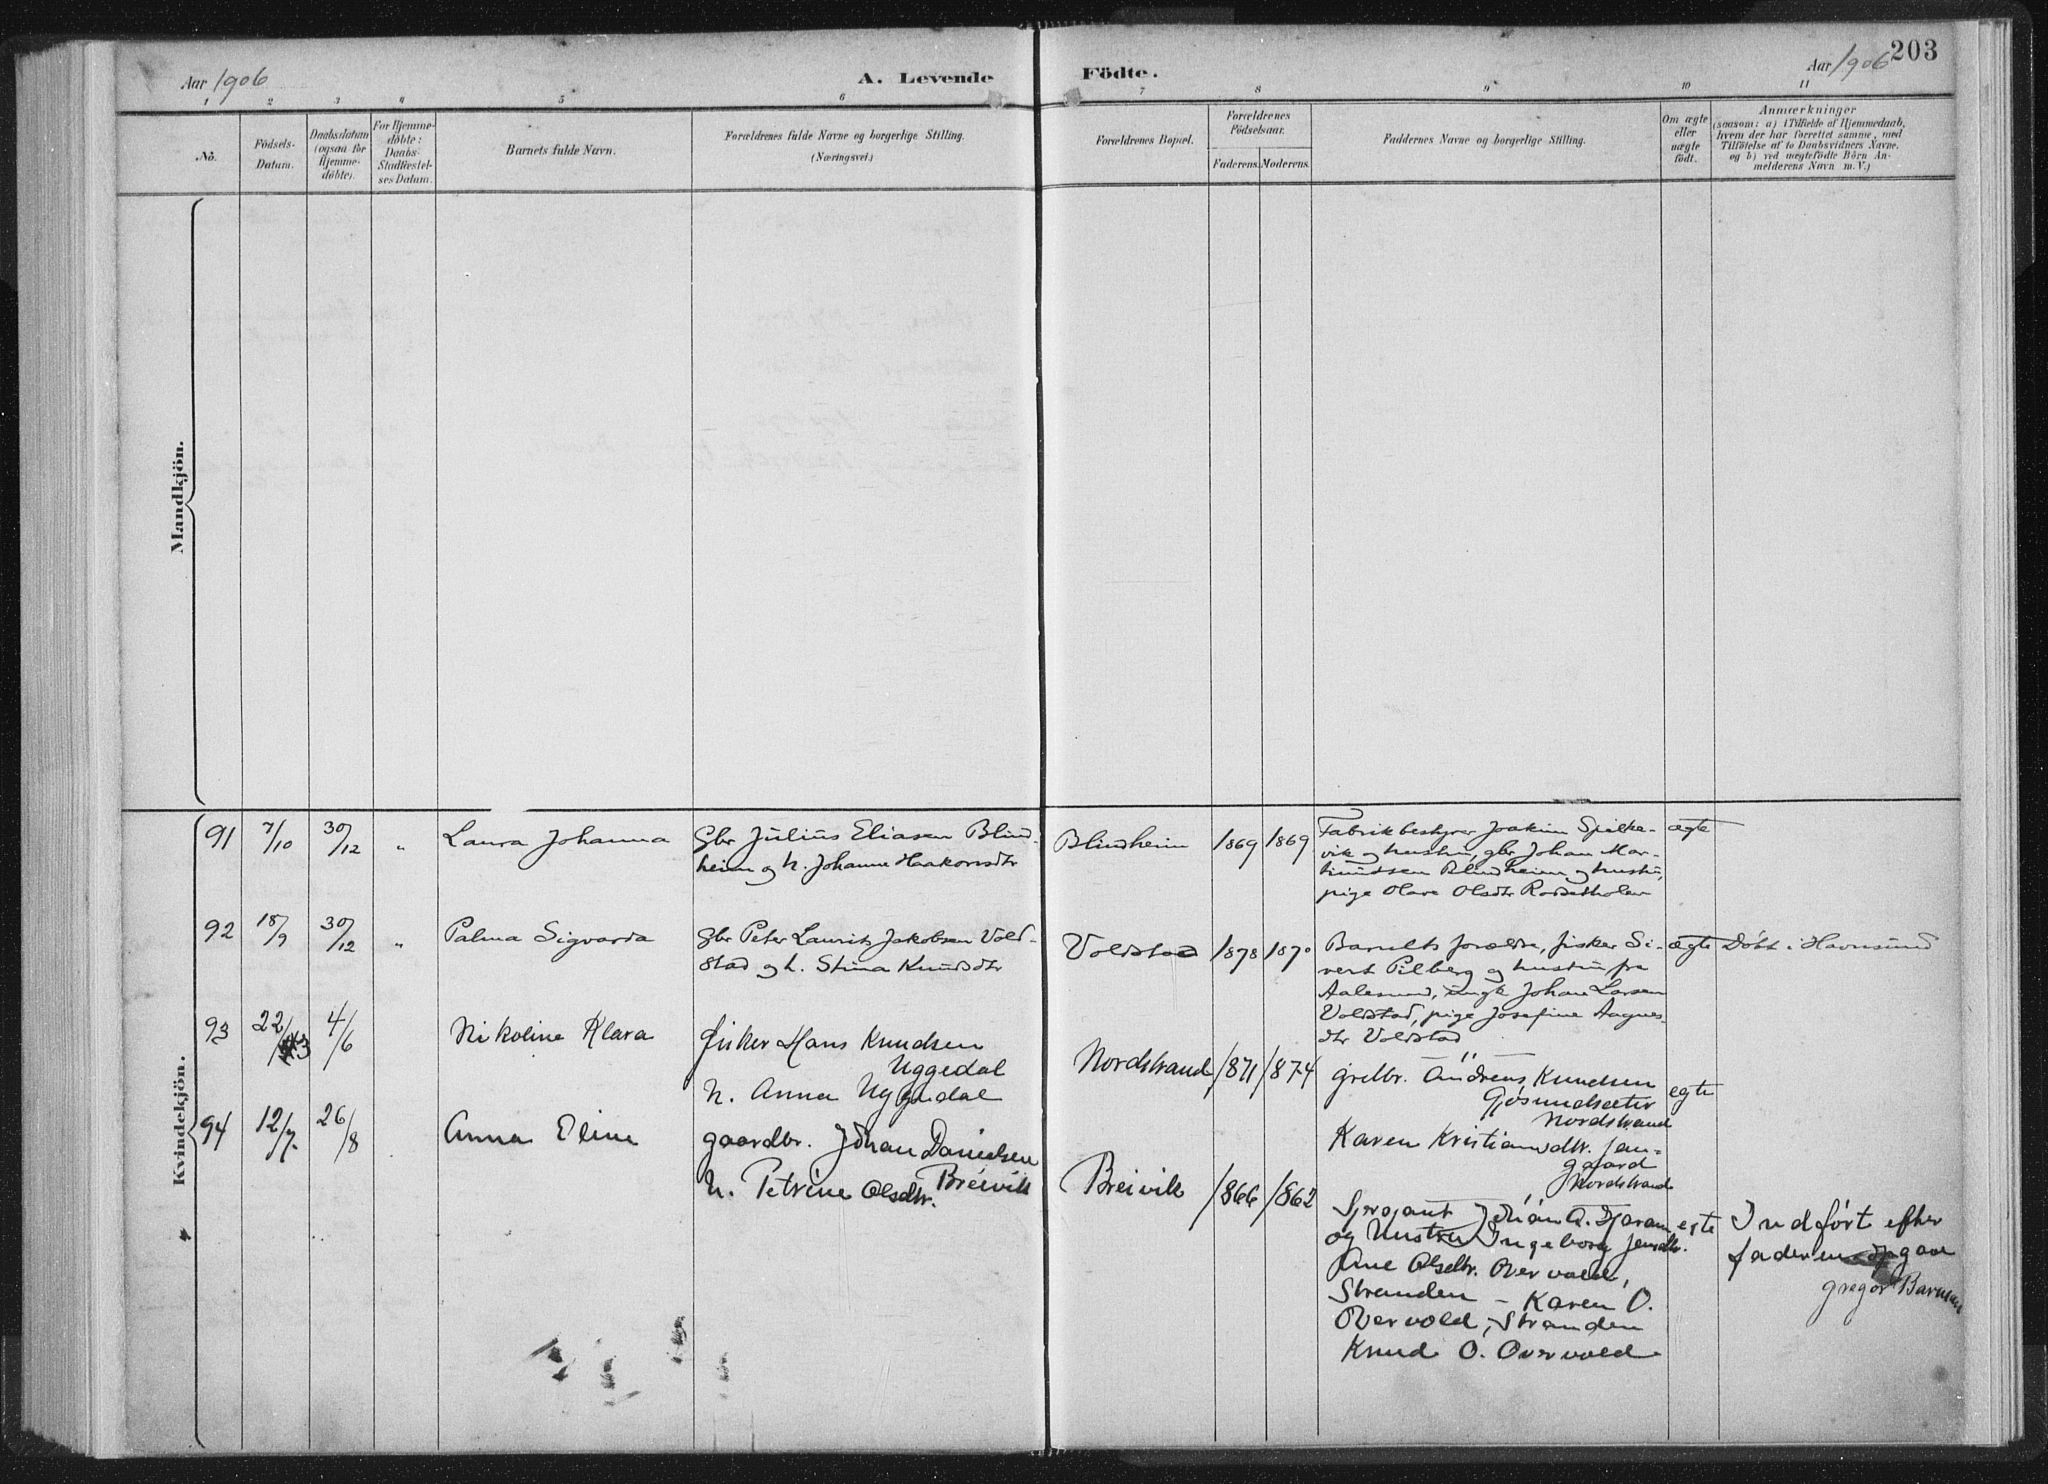 203
Aar 1906
A. Levende
Födte.
Aar 1906
1 2 3 4 5 6 7 8 9 10 11
No.
Födsels-
Datum.
Daabsdatum
(ogsaa for
Hjemme-
döbte).
For Hjemme-
döbte:
Daabs-
Stadfæstel-
ses Datum.
Barnets fulde Navn.
Forældrenes fulde Navne og borgerlige Stilling.
(Næringsvei.)
Forældrenes Bopæl.
Forældrenes
Födselsaar.
Faderens. Moderens.
Faddernes Navne og borgerlige Stilling.
Om ægte
eller
uægte
födt.
Anmærkninger
(saasom: a) i Tilfælde af Hjemmedaab,
hvem der har forrettet samme, med
Tilföielse af to Daabsvidners Navne,
og b) ved uægtefödte Börn An-
melderens Navn m. V.)
Mandkjön.
Kvindekjön.
91 7/10 30/12 " Laura Johanna
Gbr Julius Eliasen Blind-
heim og h. Johanne Haakonsdtr
Blindheim 1869 1869
Fabrikbestyrer Joakim Spilke-
vik og hustru, gbr Johan Mar-
Blindheim og hustru,
pige Olave Olsdtr
ægte
92 18/9 30/12 " Palma Sigvarda
Gbr Peter Laurits Jakobsen Vold-
stad og h. Stina Knudsdtr
Voldstad 1878 1870
Barnets forældre, fisker Si-
vert Pilberg og hustru fra
Aalesund, ungk Johan Larsen
Voldstad, pige Josefine Aagnes-
dtr Voldstad
ægte Döbt i Havnsund
93 22/3 4/6 Nikoline Klara
fisker Hans Knudsen
Uggedal
h. Anna Uggedal
Nordstrand 1871 1874
grdbr. Andreas Knudsen
Gjøsundsæter
Nordstrand
Karen Kristiansdtr. Jan-
gaard
Nordstrand
egte
94 12/7 26/8 Anna Eline
gaardbr. Johan Danielsen
Breivik
h. Petrine Olsdtr.
Breivik 1866 1862
Sjergjant Johan A.
og Hustru Ingeborg Jensdtr.
Ane Olsdtr. Overvold,
Stranden - Karen O.
Overvold, Stranden
Knud O. Overvold
egte
Indført efter
faderens opgave
Gregor